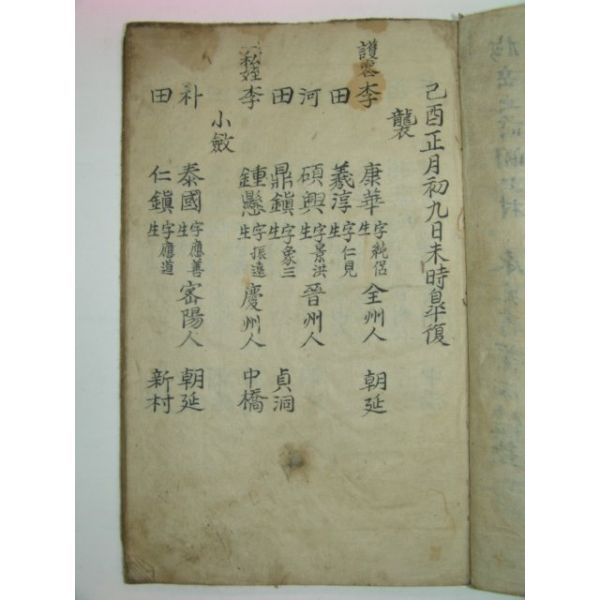 己酉正月初九日未時皐復
襲
護喪 李 康華 字純侶 生 全州人 朝延
田 羲淳 字仁見 生
河 碩興 字景洪 生 晉州人
田 鼎鎭 字象三 生 貞洞
李 鍾懸 字振遠 生 慶州人 中橋
小斂
朴 泰國 字應善 生 密陽人 朝延
田 仁鎭 字應道 生 新村